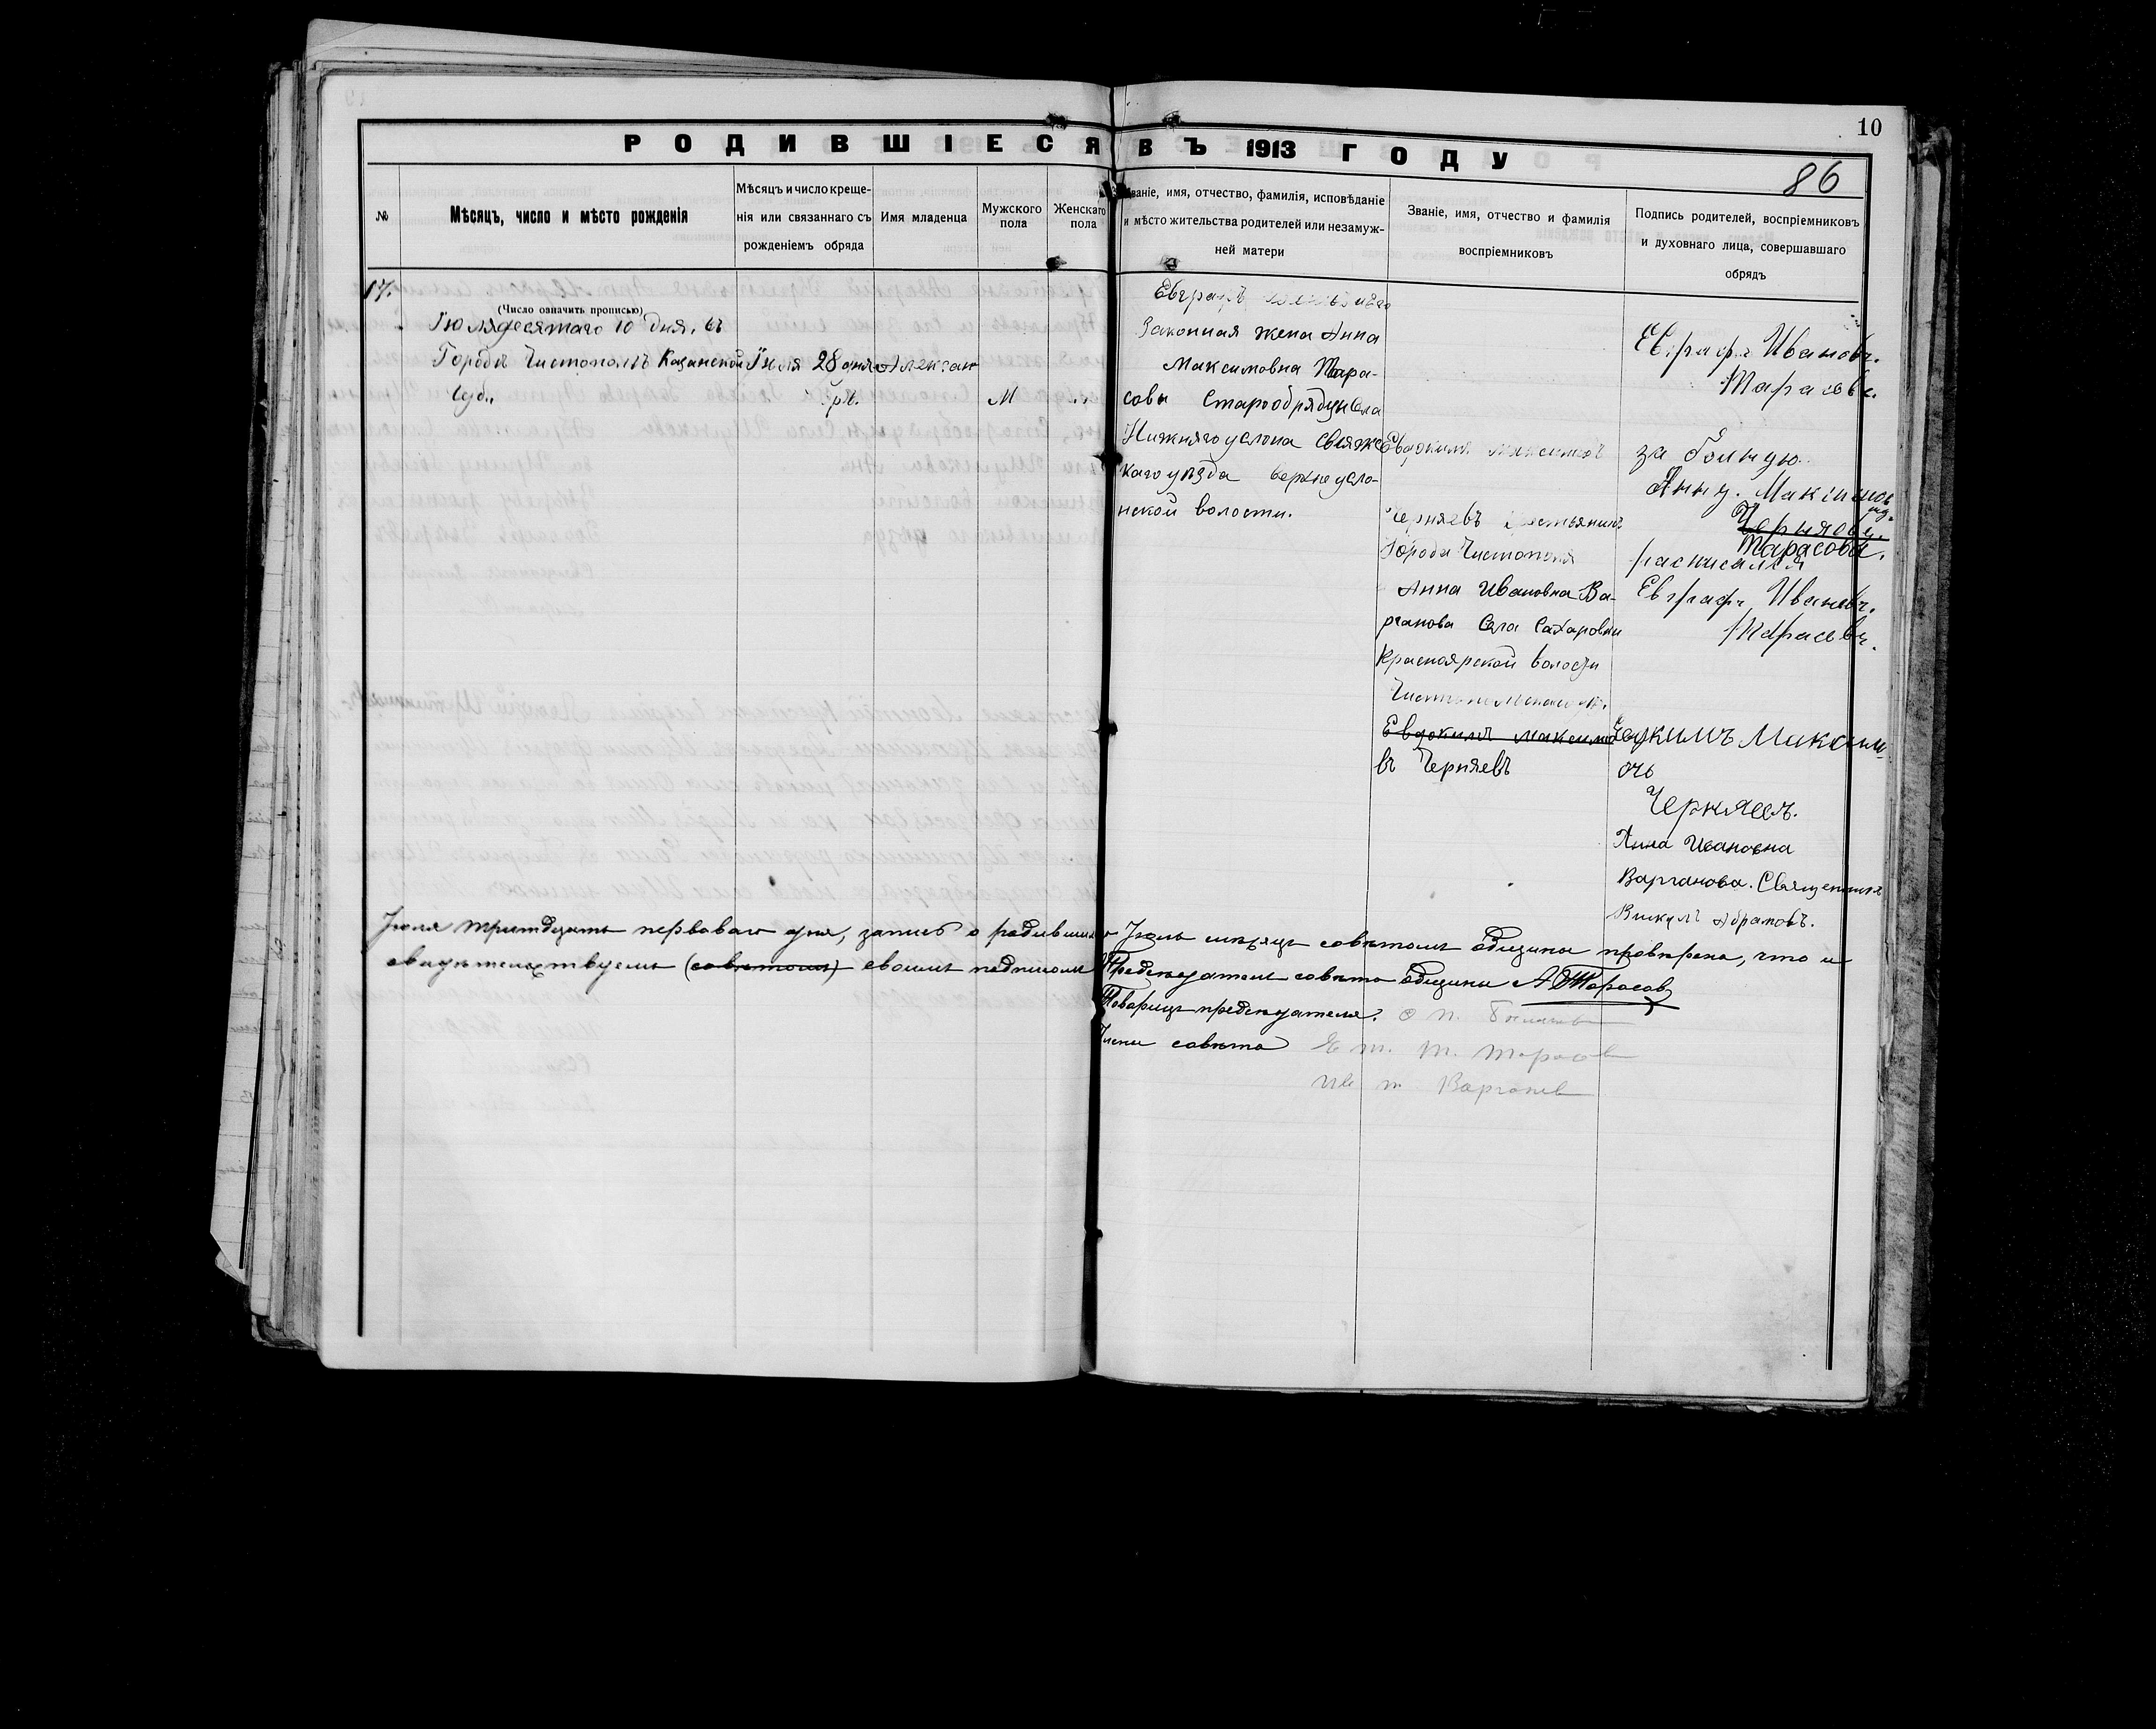 10
РОДИВШІЕСЯ ВЪ 1913 ГОДУ
86
№
Мѣсяцъ, число и мѣсто рожденія
Мѣсяцъ и число креще-
нія или связаннаго съ
рожденіемъ обряда
Имя младенца
Мужского
пола
Женскаго
пола
Званіе, имя, отчество, фамилія, исповѣданіе
и мѣсто жительства родителей или незамуж-
ней матери
Званіе, имя, отчество и фамилія
воспріемниковъ
Подпись родителей, воспріемниковъ
и духовнаго лица, совершавшаго
обрядъ
17.
(Число означить прописью)
Іюля десятаго 10 дня. въ
Городѣ Чистополѣ Казанской
губ.
Іюля 28 дня
Алексан
дръ.
М
Евграфъ
Законная жена Анна
Максимовна Тара-
совы Старообрядцы села
Нижняго услона Свіяжс
каго уѣзда верхнеусло-
нской волости.
Евдокимъ
Черняевъ крестьянинъ
Города Чистополя
Анна Ивановна Ва-
рганова Села Сахаровки
Красноярской волости
Евдокимъ Максимо
въ Черняевъ
Евграфъ Ивановъ.
Тарасовъ.
за
Анну. Максимов
ну.
Чернякову.
Тарасова.
расписался
Евграфъ Ивановъ.
Тарасовъ.
Евдкимъ Максим
очь
Черняевъ.
Анна Ивановна
Варганова. Священникъ
Викулъ Абрамовъ.
Іюля тритдцать перваваго дня, запись о родившихся Іюль мѣсяцъ совѣтомъ общины провѣрена, что и
свидѣтельствуемъ (совѣтомъ) своимъ подписомъ Предсѣдатель совѣта общины А Ѳ Тарасов
Товарищъ предсѣдателя.
Члены совѣта Тарасов
Ив Варганов